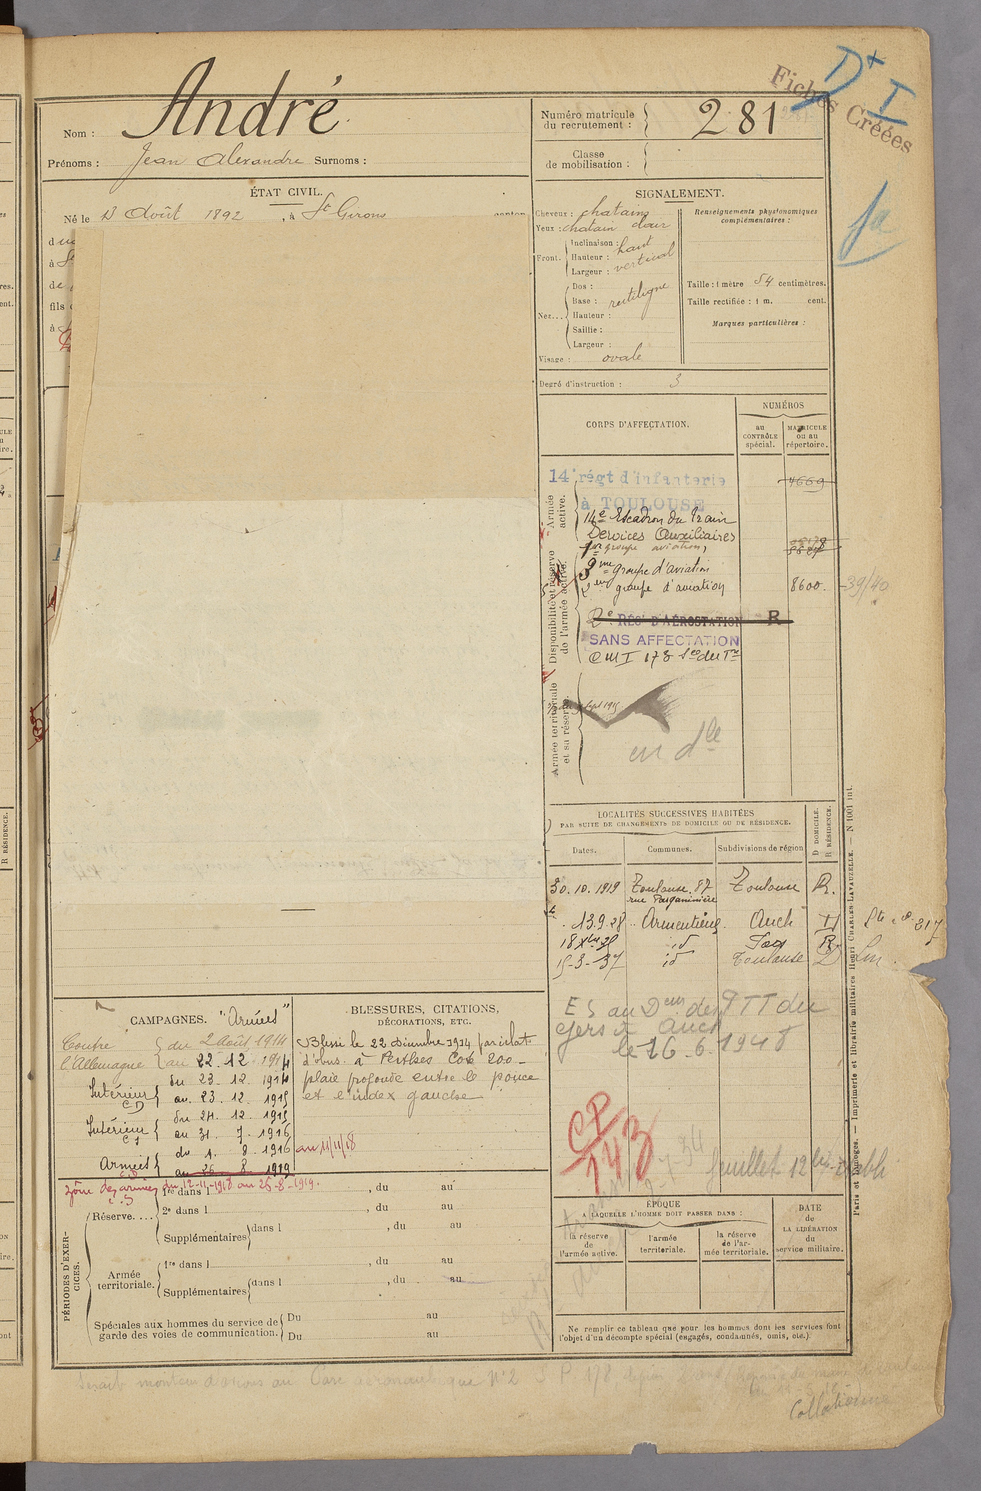 D+ I
Fiches Créées
Nom : André
Prénoms : Jean Alexandre Surnoms :
Numéro matricule du recrutement : 281
Classe de mobilisation :
ÉTAT CIVIL.
Né le 13 Août 1892, à St Girons
SIGNALEMENT.
Cheveux : chatains
Yeux : chatain clair
Front. Inclinaison : haut
Hauteur : vertical
Largeur :
Nez... Dos :
Base : rectiligne
Hauteur :
Saillie :
Largeur :
Visage : ovale
Renseignements physionomiques complémentaires :
Taille : 1 mètre 54 centimètres.
Taille rectifiée : 1 m. cent.
Marques particulières :
Degré d'instruction : 3
CORPS D'AFFECTATION.
NUMÉROS
au CONTRÔLE spécial.
MATRICULE ou au répertoire.
Armée active.
Disponibilité et réserve de l'armée active.
Armée territoriale et sa réserve.
14e régt d'infanterie 4669
à TOULOUSE
14e Escadron du Train
Services Auxiliaires
1er groupe aviation,
9me groupe d'aviation
2me groupe d'aviation 8600 - 39/40
2e RÉGt D'AÉROSTATION R
SANS AFFECTATION
CMI 173 Son du Tn
en dle
LOCALITÉS SUCCESSIVES HABITÉES
PAR SUITE DE CHANGEMENTS DE DOMICILE OU DE RÉSIDENCE.
Dates.
Communes.
Subdivisions de région
D DOMICILE.
R RÉSIDENCE.
30.10.1919 Toulouse. 87 Toulouse R.
rue Pargaminière
13.9.28 Armentieux Auch
id
15-3-37 id Toulouse D
ES au Dem des PTT du
Gers à Auch
le 26.6.1948
CP
143
feuillet 12 bis établi
CAMPAGNES. "Armées"
Contre du 2 Août 1914
l'Allemagne au 22.12.1914
Intérieur CD du 23.12.1914
au 23.12.1915
Intérieur du 24.12.1915
au 31.7.1916
Armées du 1.8.1916 au 11/11/18
au 26 8 1919
zône des armées du 12-11-1918 au 26-8-1919.
BLESSURES, CITATIONS,
DÉCORATIONS, ETC.
Blessé le 22 décembre 1914 par éclat
d'obus à Perthes Cote 200 -
plaie profonde entre le pouce
et l'index gauche
PÉRIODES D'EXERCICES.
Réserve....
1re dans l , du au
2e dans l , du au
Supplémentaires dans l , du au
Armée territoriale.
1re dans l , du au
Supplémentaires dans l , du au
Spéciales aux hommes du service de garde des voies de communication. Du au
Du au
ÉPOQUE
A LAQUELLE L'HOMME DOIT PASSER DANS :
la réserve de l'armée active.
l'armée territoriale.
la réserve de l'armée territoriale.
DATE de LA LIBÉRATION du service militaire.
Ne remplir ce tableau que pour les hommes dont les services font
l'objet d'un décompte spécial (engagés, condamnés, omis, etc.)
Paris et Limoges. — Imprimerie et librairie militaires Henri CHARLES-LAVAUZELLE. — N 1001 int.
monteur d'avions au Parc aéronautique N°2 S P 178
Collationné